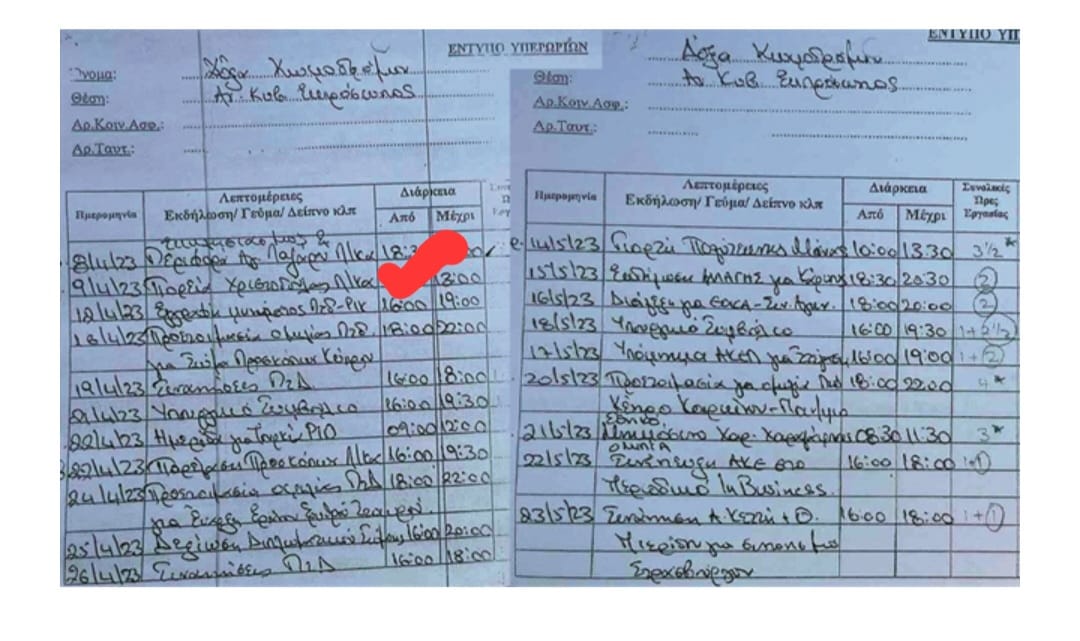 ΕΝΤΥΠΟ ΥΠΕΡΩΡΙΩΝ
Όνομα: Δόξα Κωμοδρόμου
Θέση: Αν. Κυβ. Εκπρόσωπος
Αρ.Κοιν.Ασφ.:
Αρ.Ταυτ.:
Ημερομηνία Λεπτομέρειες Εκδήλωση/ Γεύμα/ Δείπνο κλπ Διάρκεια
Από Μέχρι
Εκκλησιασμός &
8/4/23 Περιφορά Αγ. Λαζάρου Λ/κα
9/4/23 Πορεία Χριστούπολης Λ/κα 13:00
12/4/23 16:00 19:00
18/4/23 Προετοιμασία ομιλίας ΠτΔ 18:00 22:00
για Σώμα Προσκόπων Κύπρου
19/4/23 Συναντήσεις ΠτΔ 16:00 18:00
21/4/23 Υπουργικό Συμβούλιο 16:00 19:30
22/4/23 Ημερίδα για ΡΙΟ 09:00 12:00
22/4/23 Παρέλαση Προσκόπων Λ/κας 16:00 19:30
24/4/23 Προετοιμασία ομιλίας ΠτΔ 18:00 22:00
για
25/4/23 Δεξίωση Διπλωματικού Σώματος 16:00 20:00
26/4/23 Συναντήσεις ΠτΔ 16:00 18:00
ΕΝΤΥΠΟ ΥΠ
Δόξα Κωμοδρόμου
Θέση: Αν. Κυβ. Εκπρόσωπος
Αρ.Κοιν.Ασφ.:
Αρ.Ταυτ.:
Ημερομηνία Λεπτομέρειες Εκδήλωση/ Γεύμα/ Δείπνο κλπ Διάρκεια Συνολικές Ώρες Εργασίας
Από Μέχρι
14/5/23 Γιορτή Πολύτεκνης Μάνας 10:00 13:30 3½*
15/5/23 18:30 20:30 2
16/5/23 Διάλεξη για 18:00 20:00 2
18/5/23 Υπουργικό Συμβούλιο 16:00 19:30 1+2½
17/5/23 Υπόμνημα ΑΚΕΛ για 16:00 19:00 1+2
20/5/23 Προετοιμασία για ομιλία ΠτΔ 18:00 22:00 4*
Κέντρο Καρκίνου-
21/5/23 Εθνικό Μνημόσυνο 08:30 11:30 3*
22/5/23 Συνέντευξη ΑΚΕ στο 16:00 18:00 1+1
Περιοδικό InBusiness.
23/5/23 Συνάντηση 16:00 18:00 1+1
για